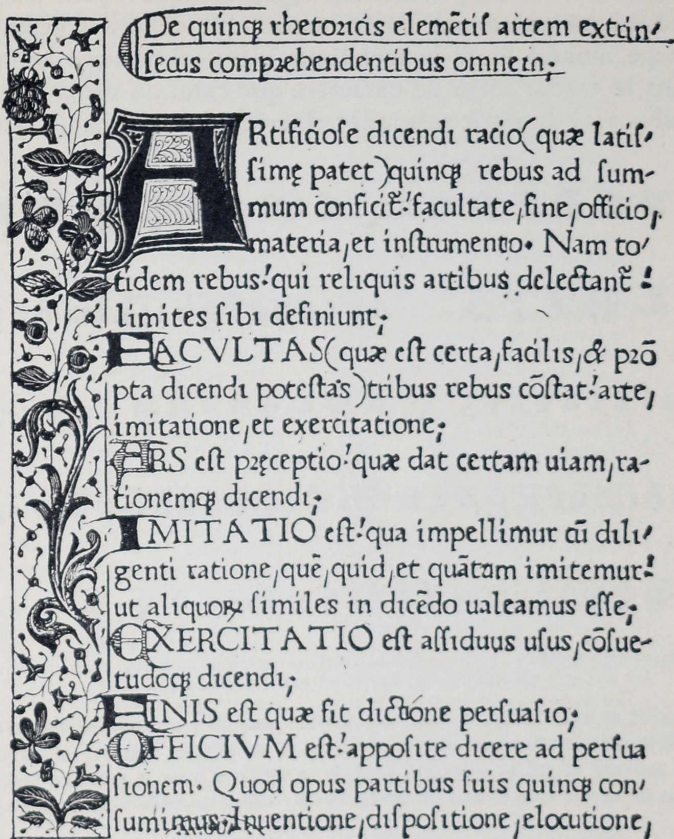 De quinqꝫ rhetoricis elemētiſ artem extrin⸗
ſecus compꝛehendentibus omnem;
ARtificioſe dicendi racio(quæ latiſ⸗
ſimę patet)quinqꝫ rebus ad ſum-
mum conficit̃:facultate,fine,officio,
materia,et inſtrumento. Nam to⸗
tidem rebus:qui reliquis artibus delectant̃:
limites ſibi definiunt;
FACVLTAS(quæ eſt certa,facilis,& pꝛō
pta dicendi poteſtas)tribus rebus cōſtat:arte,
imitatione,et exercitatione;
ARS eſt pꝛęceptio:quæ dat certam uiam,ra-
tionemqꝫ dicendi;
IMITATIO eſt:qua impellimur cū dili⸗
genti ratione,quē,quid,et quātum imitemur:
ut aliquoꝝ ſimiles in dicēdo ualeamus eſſe;
EXERCITATIO eſt aſſiduus uſus,cōſue-
tudoqꝫ dicendi;
FINIS eſt quæ fit dictione perſuaſio;
OFFICIVM eſt:appoſite dicere ad perſua
ſionem. Quod opus partibus ſuis quinqꝫ con⸗
ſumimus:Inuentione,diſpoſitione,elocutione,